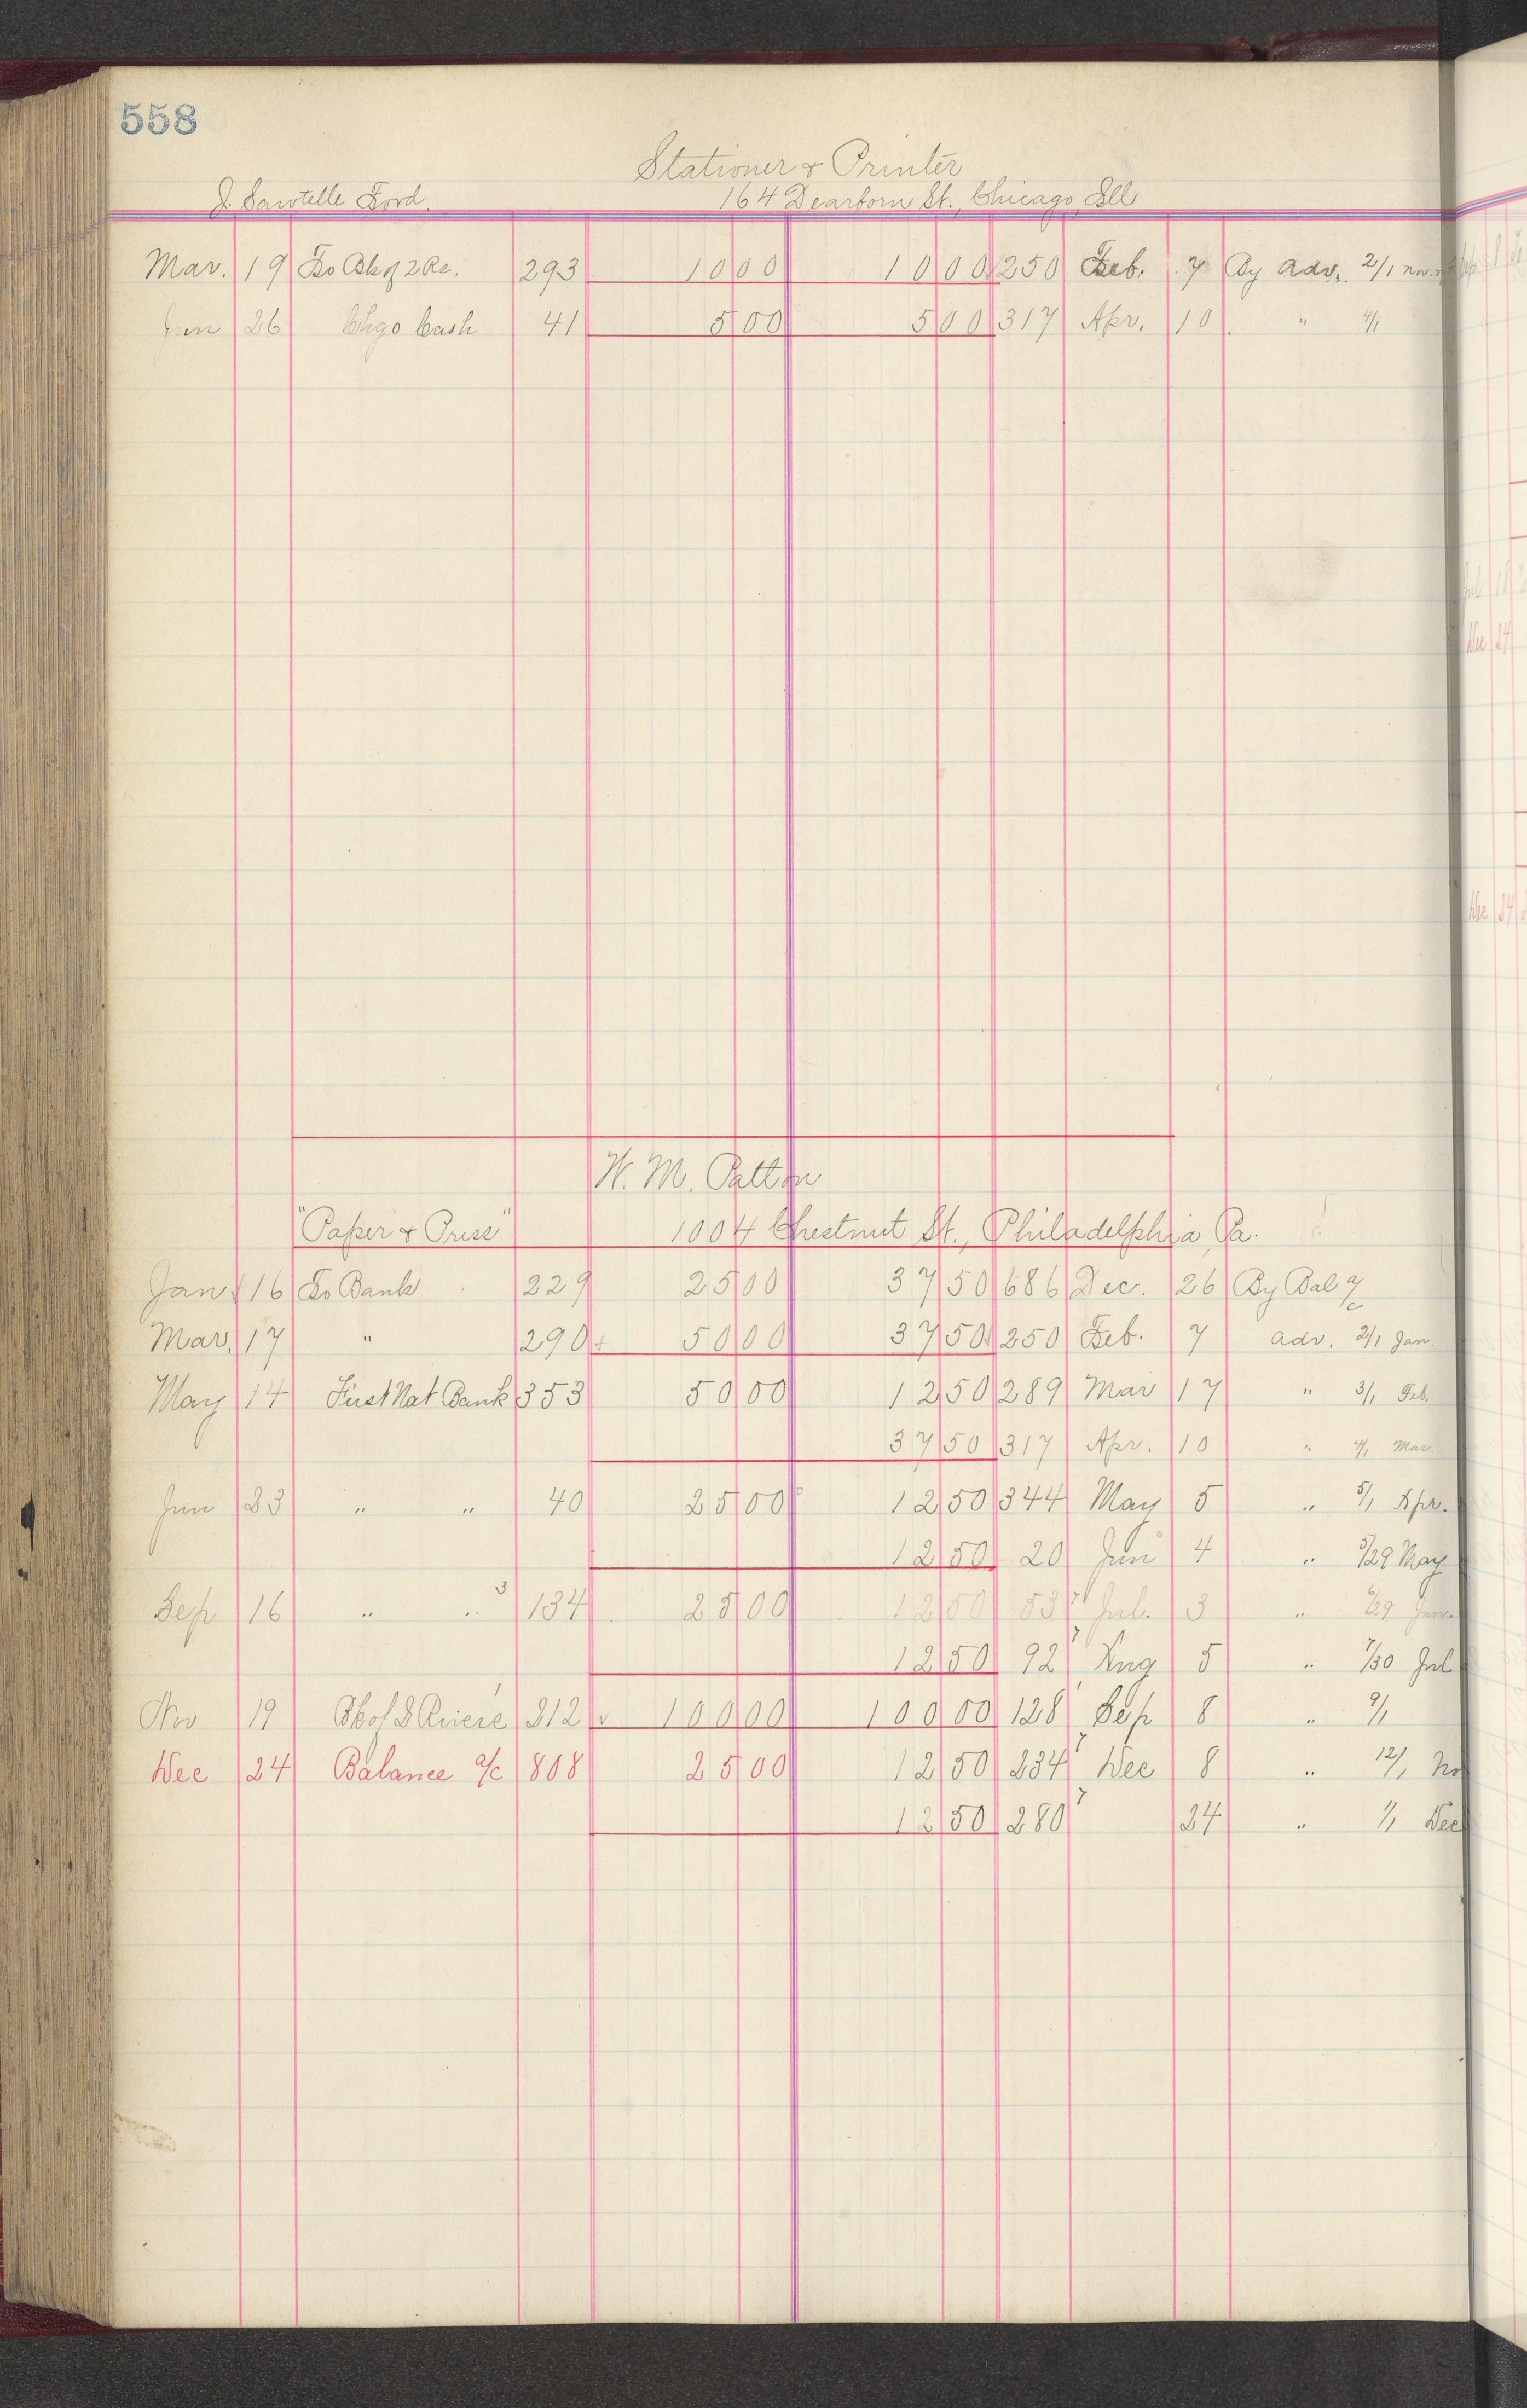 558
Stationer & Printer
J. Sawtelle Ford. 164 Dearborn St., Chicago Ill
Mar. 19 To Bk of 2 Rs. 293 10 00 10 00 250 Feb. 7 By adv. 2/1 nov.
Jun 26 Chgo Cash 41 5 00 5 00 317 Apr. 10 " 4/1
W. M. Patton
"Paper & Press" 1004 Chestnut St., Philadelphia Pa.
Jan 16 To Bank 229 25 00 37 50 686 Dec. 26 By Bal a/c
Mar. 17 " 290 50 00 37 50 250 Feb. 7 adv. 2/1 Jan.
May 14 First Nat Bank 353 50 00 12 50 289 Mar 17 " 3/1 Feb.
37 50 317 Apr. 10 " 4/1 Mar.
Jun 23 " " 40 25 00 12 50 344 May 5 " 5/1 Apr.
12 50 20 Jun 4 " 5/29 May
Sep 16 " " 3 134 25 00 12 50 53 Jul. 3 " 6/29 June
12 50 92 Aug 5 " 7/30 Jul
Nov 19 212 100 00 100 00 128 Sep 8 " 9/1
Dec 24 Balance a/c 808 25 00 12 50 234 Dec 8 " 12/1 No
12 50 280 24 " 1/1 Dec
Dec 24
Dec 24